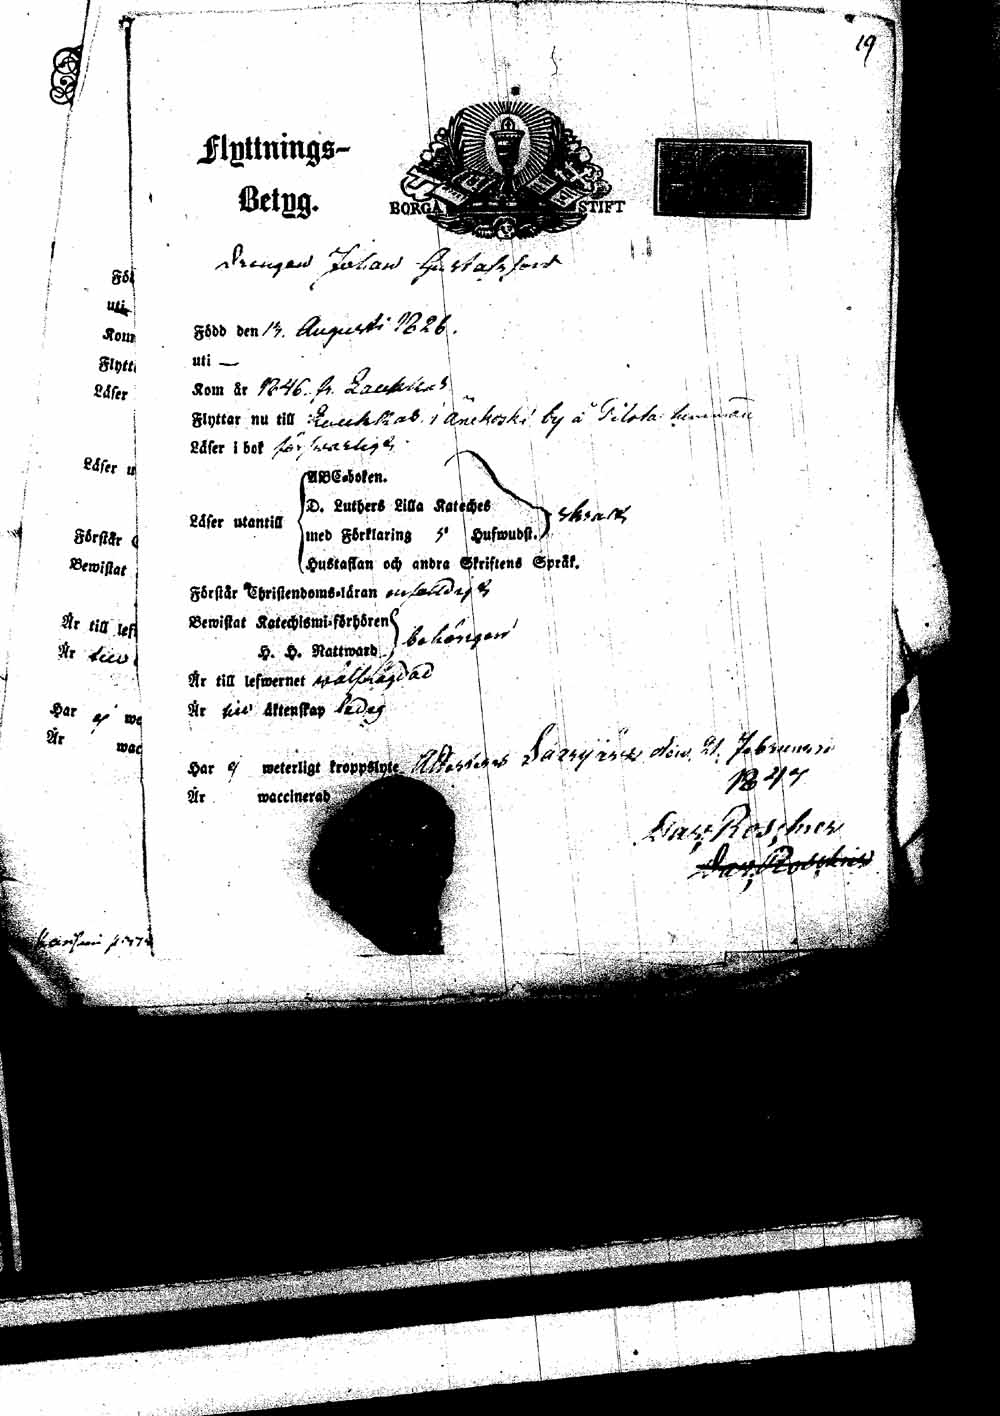 19
Flyttnings-
Betyg.
BORGÅ STIFT
Drengen Johan Gustafsson
Född den 13. Augusti 1826.
uti —
Kom år 1846. fr. Laukkas
Flyttar nu till Laukkas i Änekoski by å Pilola hemman
Läser i bok försvarligt
ABC-boken.
D. Luthers Lilla Kateches
Läser utantill
med Förklaring 5 Hufwudst.
Hustaflan och andra Skriftens Språk.
Förstår Christendoms-läran enfaldigt
Bewistat Katechismi-förhören
H. H. Nattward behörigen
Är till lefwernet wälfrägdad
Är till äktenskap ledig
Har ej weterligt kroppslyte Attesteras den 21. Februari
1847
Är waccinerad
Dav. Roschier
Dav. Roschier
Föd
uti
Kom
Flytt
Läser
Läser u
Förstår
Bewistat
Är till lef
Är
Har ej we
Är wac